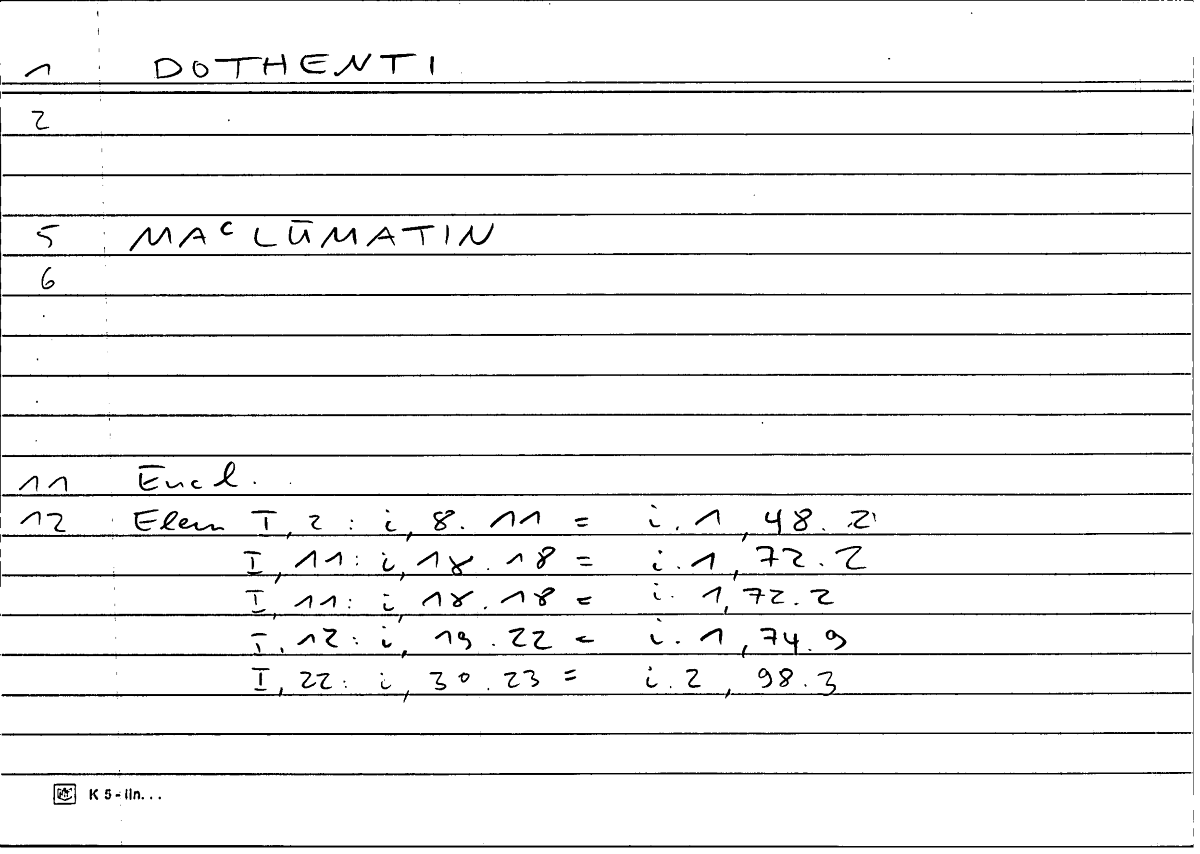 1 DOTHENTI
2
5 MAᶜLŪMATIN
6
11 Eucl.
12 Elem I, 2 : i, 8. 11 = i. 1, 48. 2
I, 11 : i, 18. 18 = i. 1, 72. 2
I, 11 : i, 18. 18 = i. 1, 72. 2
I, 12 : i, 19. 22 = i. 1, 74. 9
I, 22 : i, 30. 23 = i. 2, 98. 3
K 5 - lin...